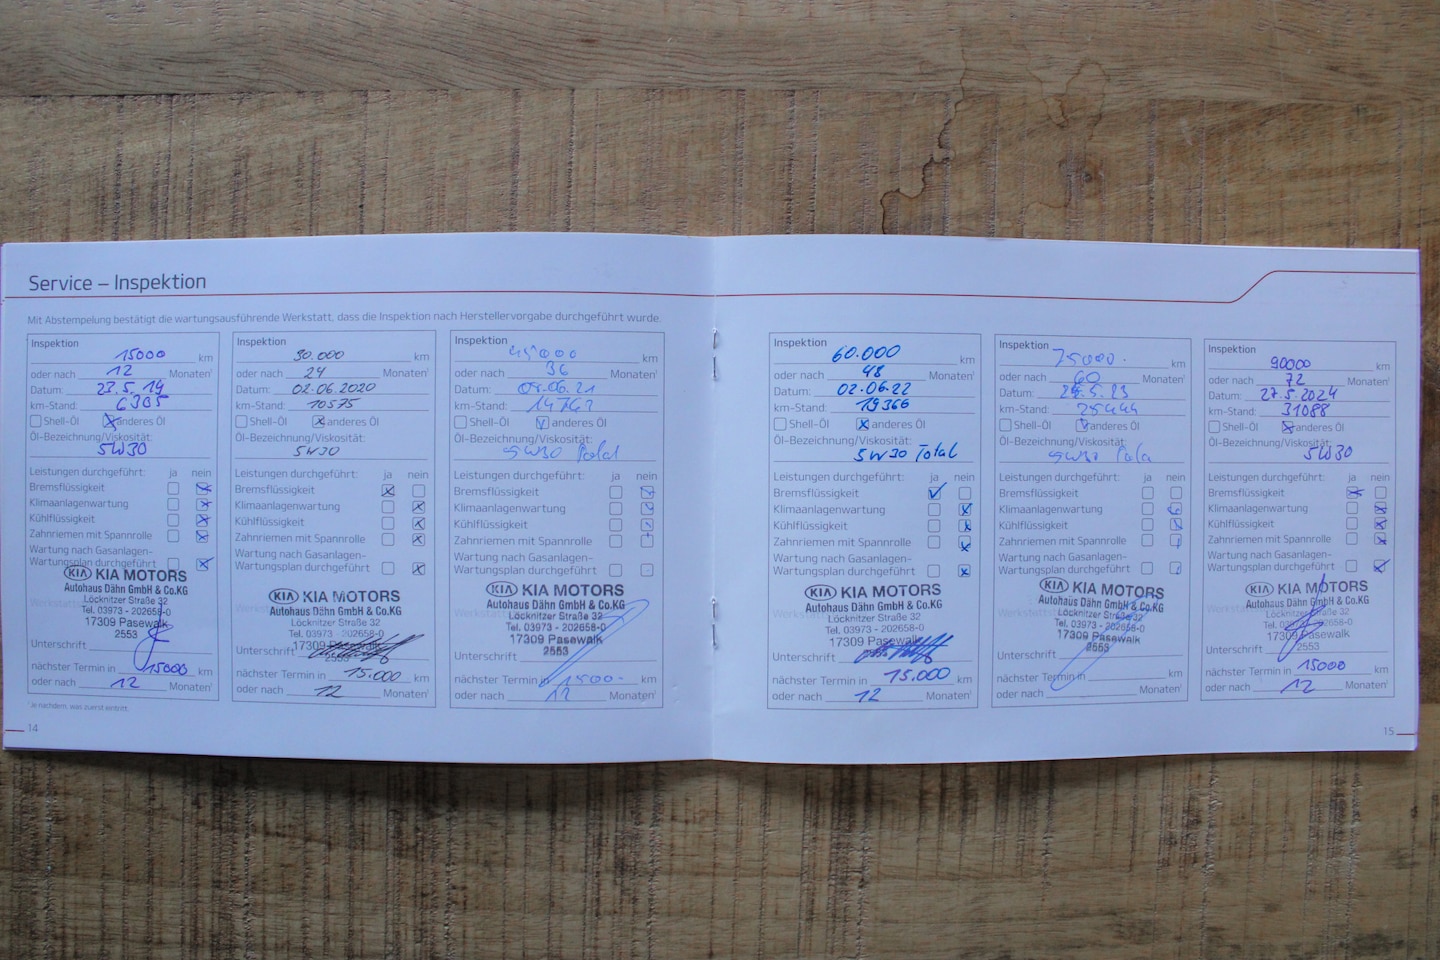 Service – Inspektion
Mit Abstempelung bestätigt die wartungsausführende Werkstatt, dass die Inspektion nach Herstellervorgabe durchgeführt wurde.
Inspektion
15000 km
oder nach 12 Monaten¹
Datum: 23.5.19
km-Stand: 6305
Shell-Öl anderes Öl
Öl-Bezeichnung/Viskosität:
5W30
Leistungen durchgeführt: ja nein
Bremsflüssigkeit
Klimaanlagenwartung
Kühlflüssigkeit
Zahnriemen mit Spannrolle
Wartung nach Gasanlagen-
Wartungsplan durchgeführt
KIA KIA MOTORS
Autohaus Dähn GmbH & Co.KG
Löcknitzer Straße 32
Tel. 03973 - 202658-0
17309 Pasewalk
2553
Unterschrift
nächster Termin in 15000 km
oder nach 12 Monaten¹
¹ Je nachdem, was zuerst eintritt.
14
Inspektion
30.000 km
oder nach 24 Monaten¹
Datum: 02.06.2020
km-Stand: 10575
Shell-Öl anderes Öl
Öl-Bezeichnung/Viskosität:
5W30
Leistungen durchgeführt: ja nein
Bremsflüssigkeit
Klimaanlagenwartung
Kühlflüssigkeit
Zahnriemen mit Spannrolle
Wartung nach Gasanlagen-
Wartungsplan durchgeführt
KIA KIA MOTORS
Autohaus Dähn GmbH & Co.KG
Löcknitzer Straße 32
Tel. 03973 - 202658-0
17309 Pasewalk
2553
Unterschrift
nächster Termin in 15.000 km
oder nach 12 Monaten¹
Inspektion
45000 km
oder nach 36 Monaten¹
Datum: .06.21
km-Stand:
Shell-Öl anderes Öl
Öl-Bezeichnung/Viskosität:
5W30 Total
Leistungen durchgeführt: ja nein
Bremsflüssigkeit
Klimaanlagenwartung
Kühlflüssigkeit
Zahnriemen mit Spannrolle
Wartung nach Gasanlagen-
Wartungsplan durchgeführt
KIA KIA MOTORS
Autohaus Dähn GmbH & Co.KG
Löcknitzer Straße 32
Tel. 03973 - 202658-0
17309 Pasewalk
2553
Unterschrift
nächster Termin in km
oder nach 12 Monaten¹
Inspektion
60.000 km
oder nach 48 Monaten¹
Datum: 02.06.22
km-Stand: 19366
Shell-Öl anderes Öl
Öl-Bezeichnung/Viskosität:
5W30 Total
Leistungen durchgeführt: ja nein
Bremsflüssigkeit
Klimaanlagenwartung
Kühlflüssigkeit
Zahnriemen mit Spannrolle
Wartung nach Gasanlagen-
Wartungsplan durchgeführt
KIA KIA MOTORS
Autohaus Dähn GmbH & Co.KG
Löcknitzer Straße 32
Tel. 03973 - 202658-0
17309 Pasewalk
2553
Unterschrift
nächster Termin in 15.000 km
oder nach 12 Monaten¹
Inspektion
75000 km
oder nach 60 Monaten¹
Datum: .5.23
km-Stand: 25444
Shell-Öl anderes Öl
Öl-Bezeichnung/Viskosität:
5W30
Leistungen durchgeführt: ja nein
Bremsflüssigkeit
Klimaanlagenwartung
Kühlflüssigkeit
Zahnriemen mit Spannrolle
Wartung nach Gasanlagen-
Wartungsplan durchgeführt
KIA KIA MOTORS
Autohaus Dähn GmbH & Co.KG
Löcknitzer Straße 32
Tel. 03973 - 202658-0
17309 Pasewalk
2553
Unterschrift
nächster Termin in km
oder nach Monaten¹
Inspektion
90000 km
oder nach 72 Monaten¹
Datum: 27.5.2024
km-Stand: 31088
Shell-Öl anderes Öl
Öl-Bezeichnung/Viskosität:
5W30
Leistungen durchgeführt: ja nein
Bremsflüssigkeit
Klimaanlagenwartung
Kühlflüssigkeit
Zahnriemen mit Spannrolle
Wartung nach Gasanlagen-
Wartungsplan durchgeführt
KIA KIA MOTORS
Autohaus Dähn GmbH & Co.KG
Löcknitzer Straße 32
Tel. 03973 - 202658-0
17309 Pasewalk
2553
Unterschrift
nächster Termin in 15000 km
oder nach 12 Monaten¹
15